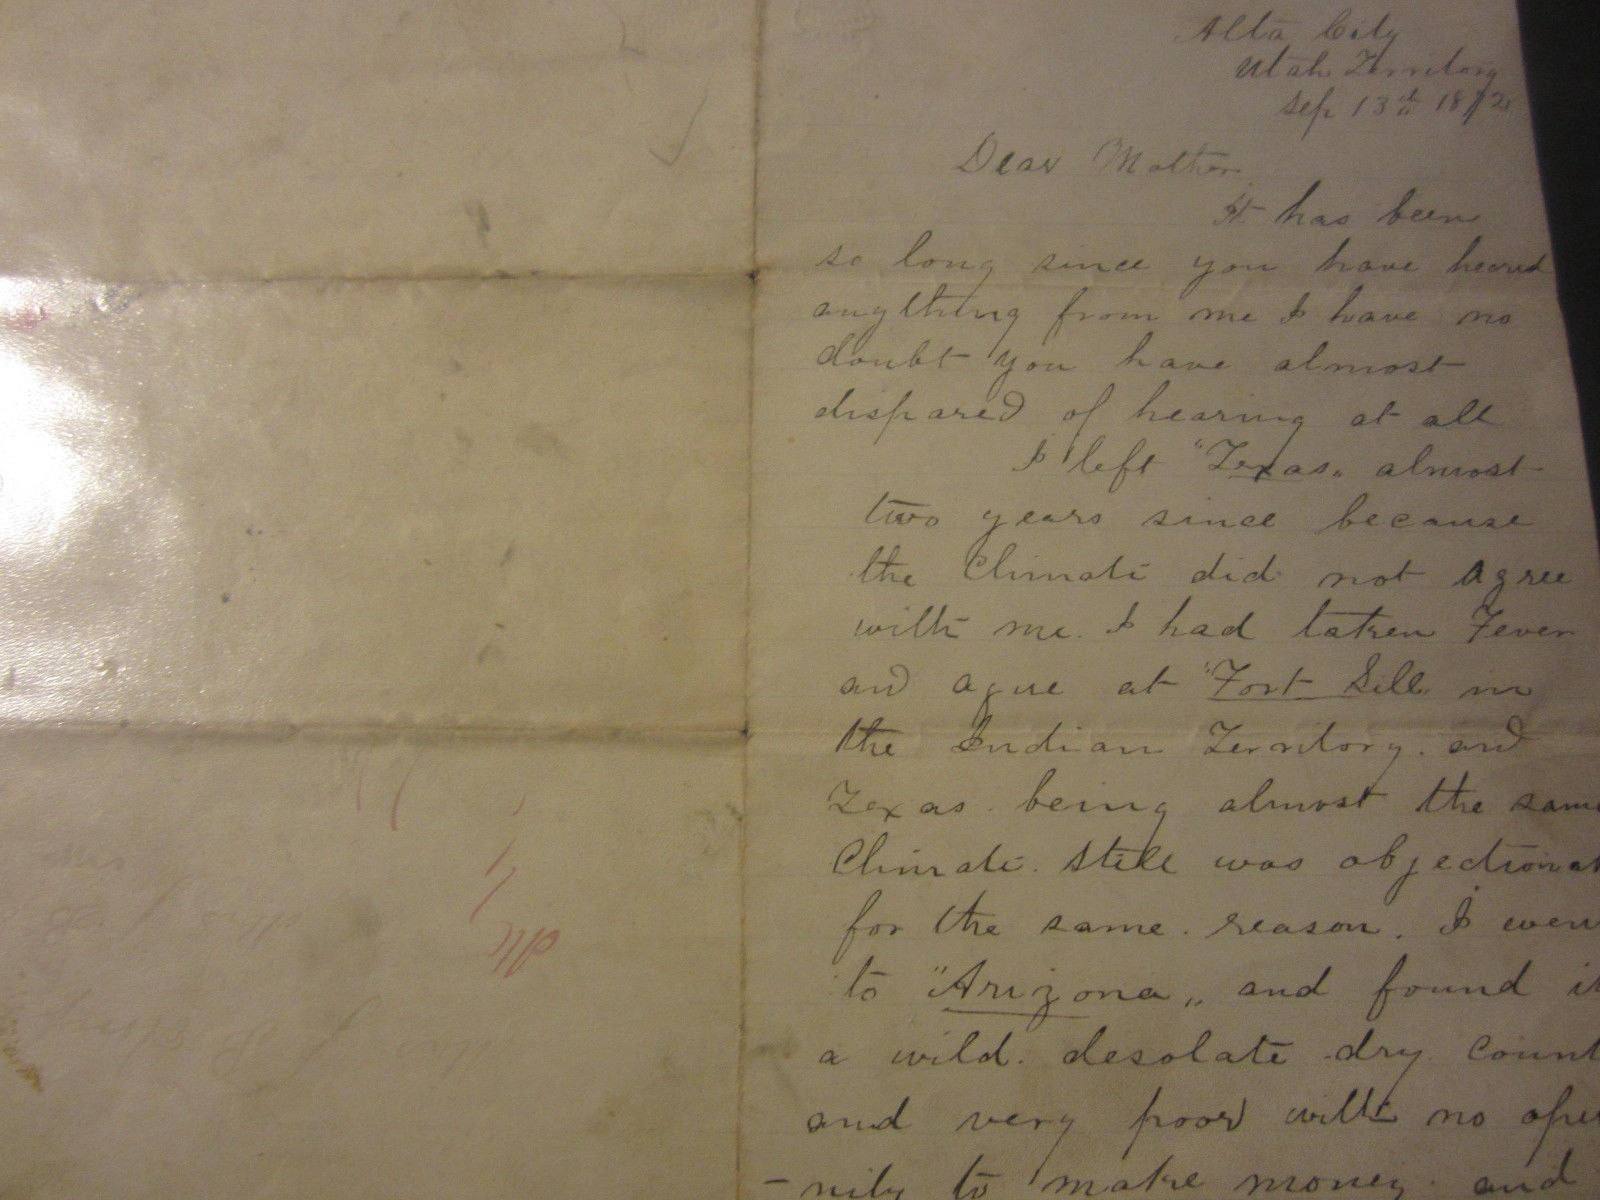 Alta City
Utah Territory
Sep 13th 1872
Dear Mother
It has been
so long since you have heard
anything from me I have no
doubt you have almost
dispared of hearing at all
I left "Texas„ almost
two years since because
the Climate did not agree
with me. I had taken Fever
and ague at "Fort Sill in
the Indian Territory. and
Texas. being almost the same
Climate. still was objectionab
for the same. reason. I even
to "Arizona„ and found it
a wild. desolate dry. count
and very poor with no opur
-nity to make money. and